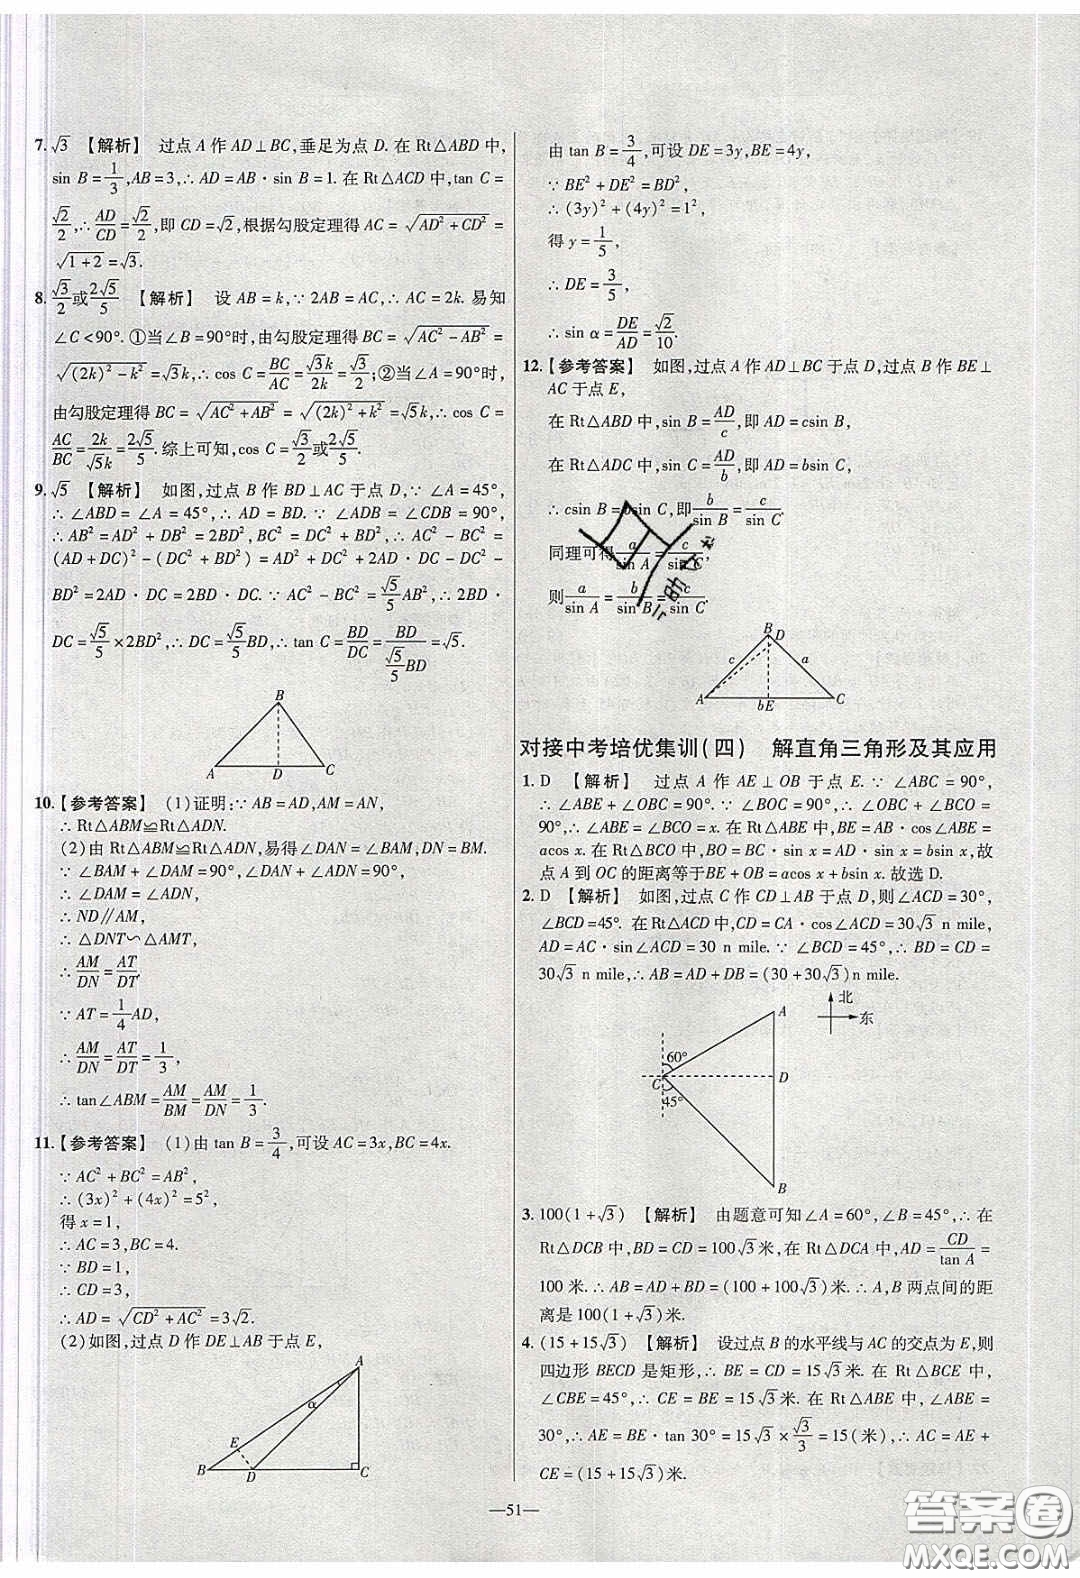 7. √3 【解析】 过点 A 作 AD⊥BC,垂足为点 D. 在 Rt△ABD 中,
sin B = 1/3, AB=3,∴ AD=AB·sin B=1. 在 Rt△ACD 中,tan C=
√2/2,∴ AD/CD = √2/2,即 CD=√2,根据勾股定理得 AC=√(AD²+CD²)=
√(1+2)=√3.
8. √3/2或2√5/5 【解析】 设 AB=k,∵ 2AB=AC,∴ AC=2k. 易知
∠C<90°. ①当∠B=90°时,由勾股定理得 BC=√(AC²-AB²)=
√((2k)²-k²)=√3k,∴ cos C=BC/AC=√3k/2k=√3/2;②当∠A=90°时,
由勾股定理得 BC=√(AC²+AB²)=√((2k)²+k²)=√5k,∴ cos C=
AC/BC=2k/√5k=2√5/5. 综上可知,cos C=√3/2或2√5/5.
9. √5 【解析】 如图,过点 B 作 BD⊥AC 于点 D,∵ ∠A=45°,
∴ ∠ABD=∠A=45°,∴ AD=BD. ∵ ∠ADB=∠CDB=90°,
∴ AB²=AD²+DB²=2BD²,BC²=DC²+BD²,∴ AC²-BC²=
(AD+DC)²-(DC²+BD²)=AD²+DC²+2AD·DC-DC²-
BD²=2AD·DC=2BD·DC. ∵ AC²-BC²=√5/5AB²,∴ 2BD·
DC=√5/5×2BD²,∴ DC=√5/5BD,∴ tan C=BD/DC=BD/(√5/5BD)=√5.
B
A D C
10.【参考答案】 (1)证明:∵ AB=AD,AM=AN,
∴ Rt△ABM≌Rt△ADN.
(2)由 Rt△ABM≌Rt△ADN,易得∠DAN=∠BAM,DN=BM.
∵ ∠BAM+∠DAM=90°,∠DAN+∠ADN=90°,
∴ ∠DAM=∠ADN,
∴ ND∥AM,
∴ △DNT∽△AMT,
∴ AM/DN=AT/DT.
∵ AT=1/4AD,
∴ AM/DN=AT/DT=1/3,
∴ tan∠ABM=AM/BM=AM/DN=1/3.
11.【参考答案】 (1)由 tan B=3/4,可设 AC=3x,BC=4x.
∵ AC²+BC²=AB²,
∴ (3x)²+(4x)²=5²,
得 x=1,
∴ AC=3,BC=4.
∵ BD=1,
∴ CD=3,
∴ AD=√(CD²+AC²)=3√2.
(2)如图,过点 D 作 DE⊥AB 于点 E,
A
α
E
B D C
由 tan B=3/4,可设 DE=3y,BE=4y,
∵ BE²+DE²=BD²,
∴ (3y)²+(4y)²=1²,
得 y=1/5,
∴ DE=3/5,
∴ sin α=DE/AD=√2/10.
12.【参考答案】 如图,过点 A 作 AD⊥BC 于点 D,过点 B 作 BE⊥
AC 于点 E,
在 Rt△ABD 中,sin B=AD/c,即 AD=csin B,
在 Rt△ADC 中,sin C=AD/b,即 AD=bsin C,
∴ csin B=bsin C,即b/sin B=c/sin C,
同理可得a/sin A=c/sin C,
则a/sin A=b/sin B=c/sin C.
B
D
c a
A bE C
对接中考培优集训(四) 解直角三角形及其应用
1. D 【解析】 过点 A 作 AE⊥OB 于点 E. ∵ ∠ABC=90°,
∴ ∠ABE+∠OBC=90°. ∵ ∠BOC=90°,∴ ∠OBC+∠BCO=
90°,∴ ∠ABE=∠BCO=x. 在 Rt△ABE 中,BE=AB·cos∠ABE=
acos x. 在 Rt△BCO 中,BO=BC·sin x=AD·sin x=bsin x,故
点 A 到 OC 的距离等于BE+OB=acos x+bsin x. 故选 D.
2. D 【解析】 如图,过点 C 作 CD⊥AB 于点 D,则∠ACD=30°,
∠BCD=45°. 在 Rt△ACD 中,CD=CA·cos∠ACD=30√3 n mile,
AD=AC·sin∠ACD=30 n mile. ∵ ∠BCD=45°,∴ BD=CD=
30√3 n mile,∴ AB=AD+DB=(30+30√3)n mile.
北
东
A
60°
C D
45°
B
3. 100(1+√3) 【解析】 由题意可知∠A=60°,∠B=45°,∴ 在
Rt△DCB 中,BD=CD=100√3米,在 Rt△DCA 中,AD=CD/tan A=
100 米. ∴ AB=AD+BD=(100+100√3)米. ∴ A,B 两点间的距
离是100(1+√3)米.
4. (15+15√3) 【解析】 设过点 B 的水平线与 AC 的交点为 E,则
四边形 BECD 是矩形,∴ BE=CD=15√3米. 在 Rt△BCE 中,
∠CBE=45°,∴ CE=BE=15√3米. 在 Rt△ABE 中,∠ABE=
30°,∴ AE=BE·tan 30°=15√3×√3/3=15(米),∴ AC=AE+
CE=(15+15√3)米.
—51—
答案圈
MXQE.COM